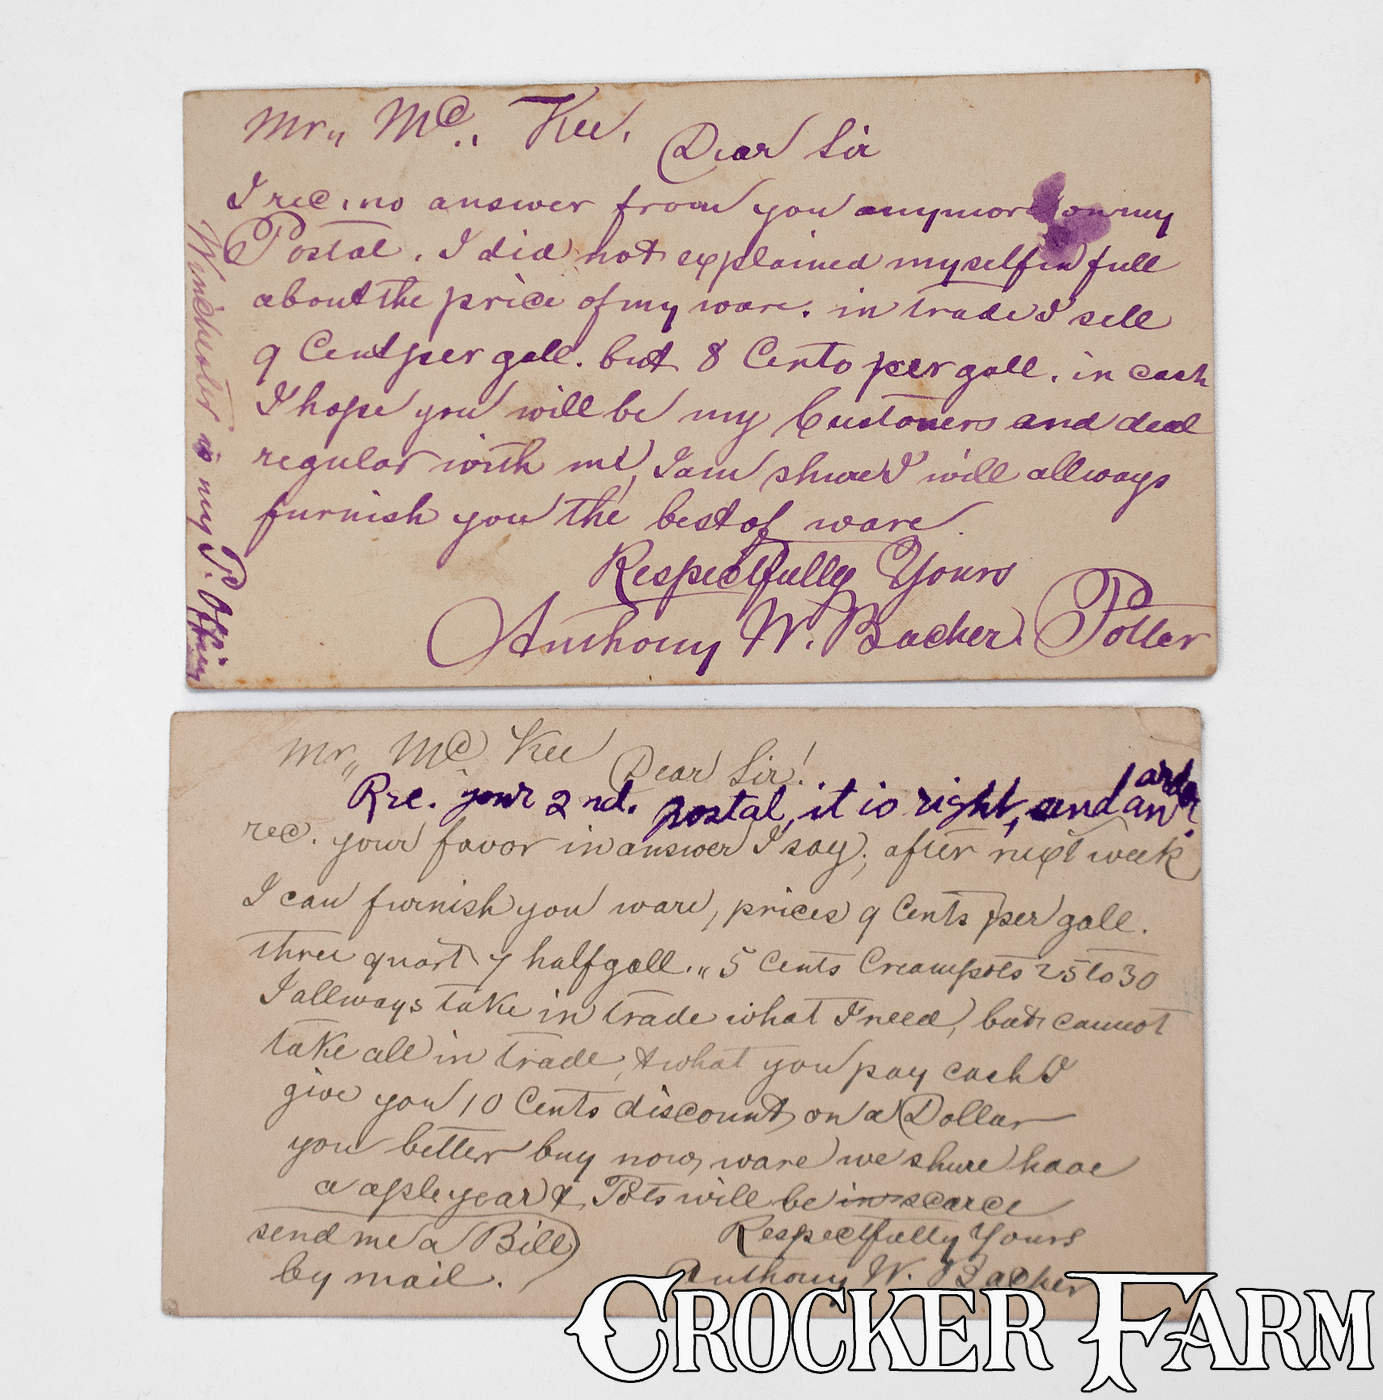 Mr,, Mc.. Kee.
Dear Sir
I rec. no answer from you anymore on my
Postal. I did not explained myself in full
about the price of my ware. in trade I sell
9 Cent per gall. but 8 Cents per gall. in cash
I hope you will be my Customers and deal
regular with me, I am shure I will allways
furnish you the best of ware.
Respectfully Yours
Anthony W. Bacher. Potter
Winchester is my P. Office
Mr,, Mc Kee
Dear Sir!
Rec. your 2nd. postal, it is right, and an order.
rec. your favor in answer I say; after next week
I can furnish you ware, prices 9 Cents per gall.
three quart 7 half gall. ,, 5 Cents Creampots 25 to 30
I allways take in trade what I need, but cannot
take all in trade, & what you pay cash I
give you 10 Cents discount, on a Dollar
you better buy now, ware we shure have
a aple year & Pots will be in scarce
send me a Bill
by mail.
Respectfully Yours
Anthony W. Bacher
CROCKER FARM